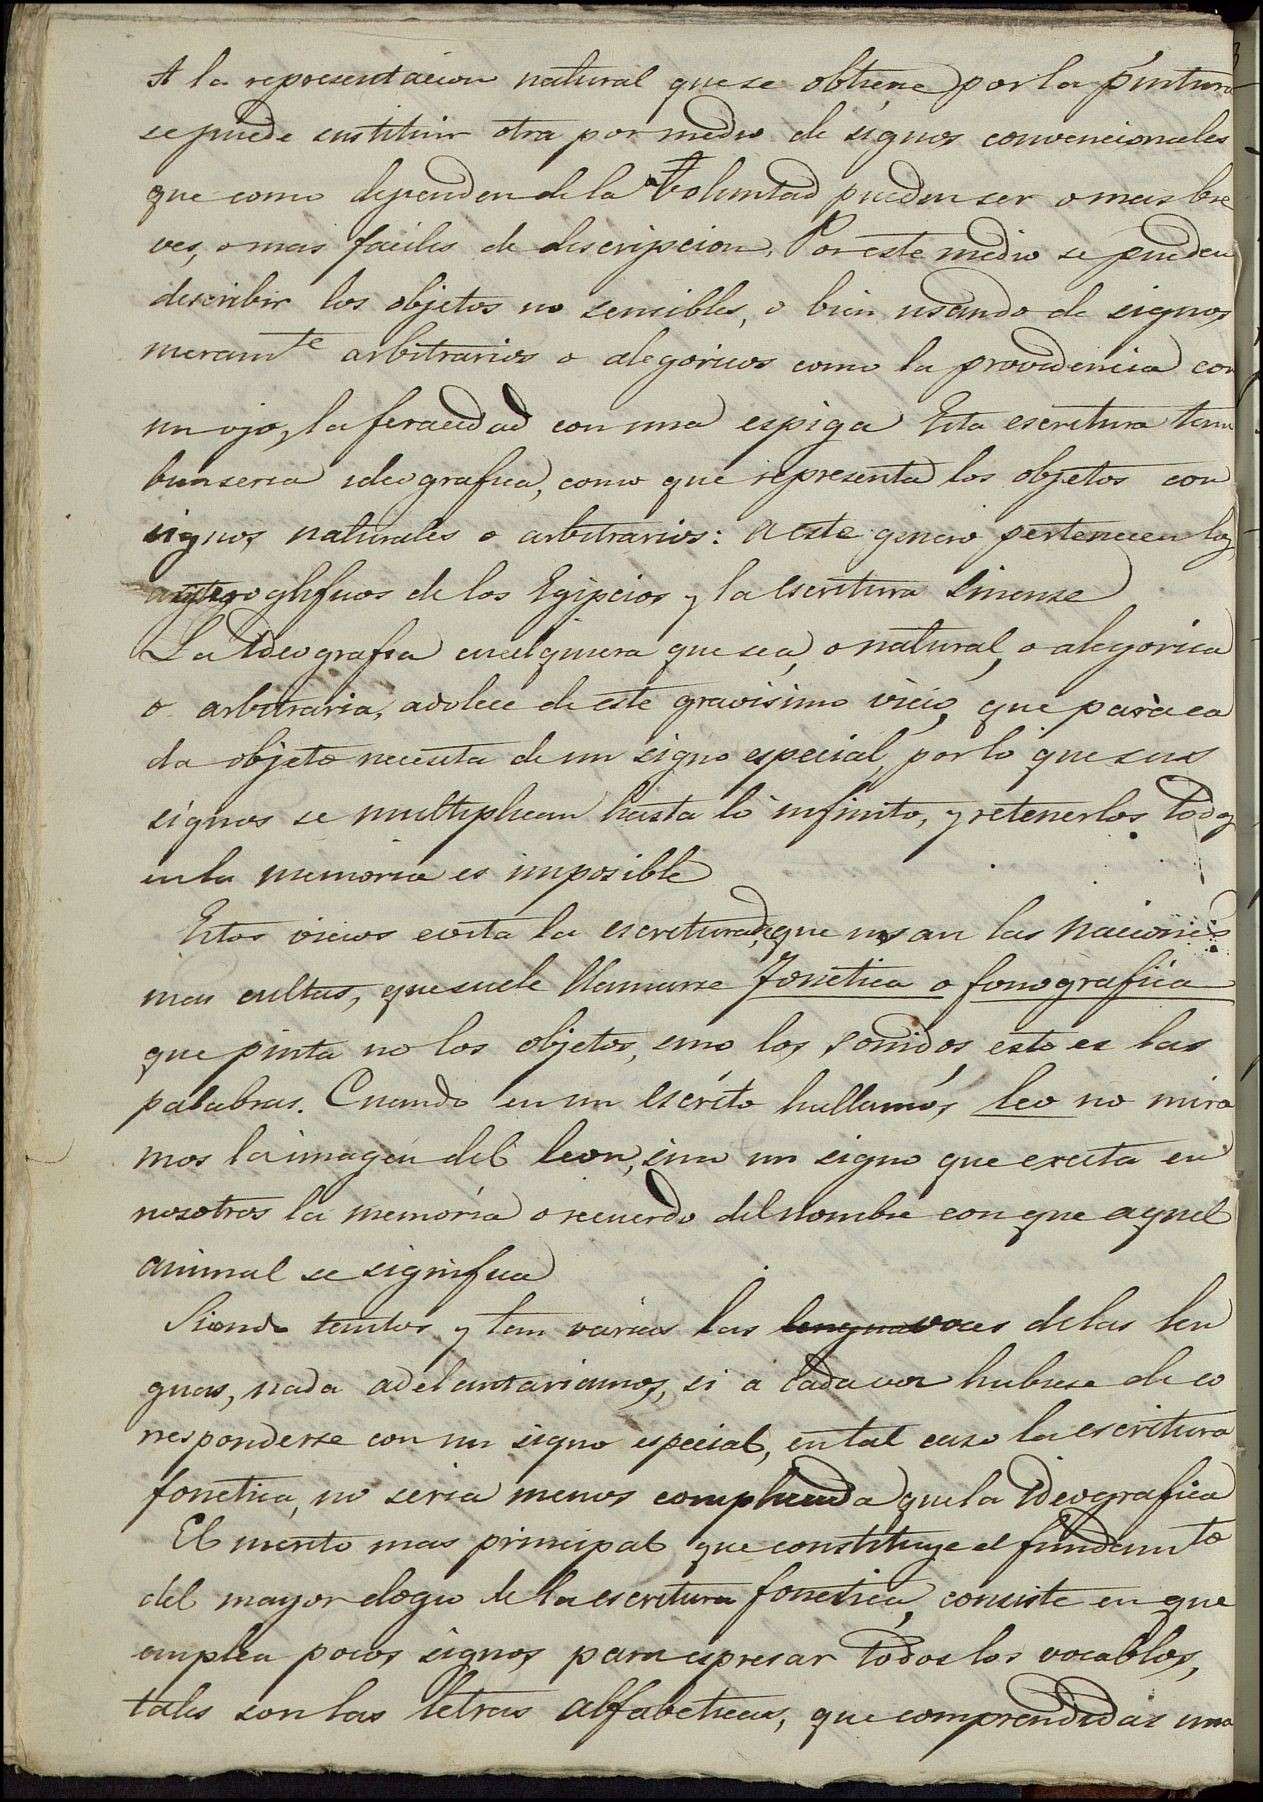 A la representacion natural que se obtiene por la pintura
se puede sustituir otra por medio de signos convencionales
que como dependen de la voluntad pueden ser o mas bre
ves, o mas faciles de descripcion. Por este medio se pueden
describir los objetos no sensibles, o bien usando de signos
meramte arbitrarios o alegoricos como la providencia con
un ojo, la feracidad con una espiga Esta escritura tam
bien seria ideografica, como que representa los objetos con
signos naturales o arbitrarios: a este genero pertenecen los
glificos de los Egipcios y la escritura Sinense
La Ideografia cualquiera que sea, o natural, o alegorica
o arbitraria, adolece de este gravisimo vicio, que para ca
da objeto necesita de un signo especial, por lo que sus
signos se multiplican hasta lo infinito, y retenerlos todos
en la memoria es imposible
Estos vicios evita la escritura de que usan las naciones
mas cultas, que suele llamarse fonetica o fonografica
que pinta no los objetos, sino los sonidos, esto es las
palabras. Cuando en un escrito hallamos, leo no mira
mos la imagen del leon, sino un signo que excita en
nosotros la memoria o recuerdo del nombre con que aquel
animal se significa
Siendo tantos y tan varias las lenguas voces de las len
guas, nada adelantariamos, si a cada voz hubiese de co
rresponderse con un signo especial, en tal caso la escritura
fonetica, no seria menos complicada que la Ideografica
El merito mas principal que constituye el fundamto
del mayor elogio de la escritura fonetica, consiste en que
emplea pocos signos para espresar todos los vocablos,
tales son las letras alfabeticas, que comprendidas una